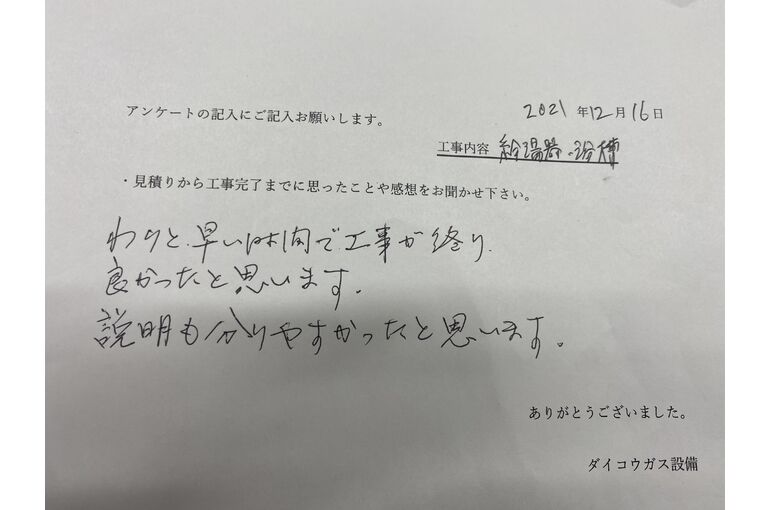 アンケートの記入にご記入お願いします。
2021年12月16日
工事内容 給湯器・浴槽
・見積りから工事完了までに思ったことや感想をお聞かせ下さい。
わりと、早い時間で工事が終り、
良かったと思います。
説明も分りやすかったと思います。
ありがとうございました。
ダイコウガス設備